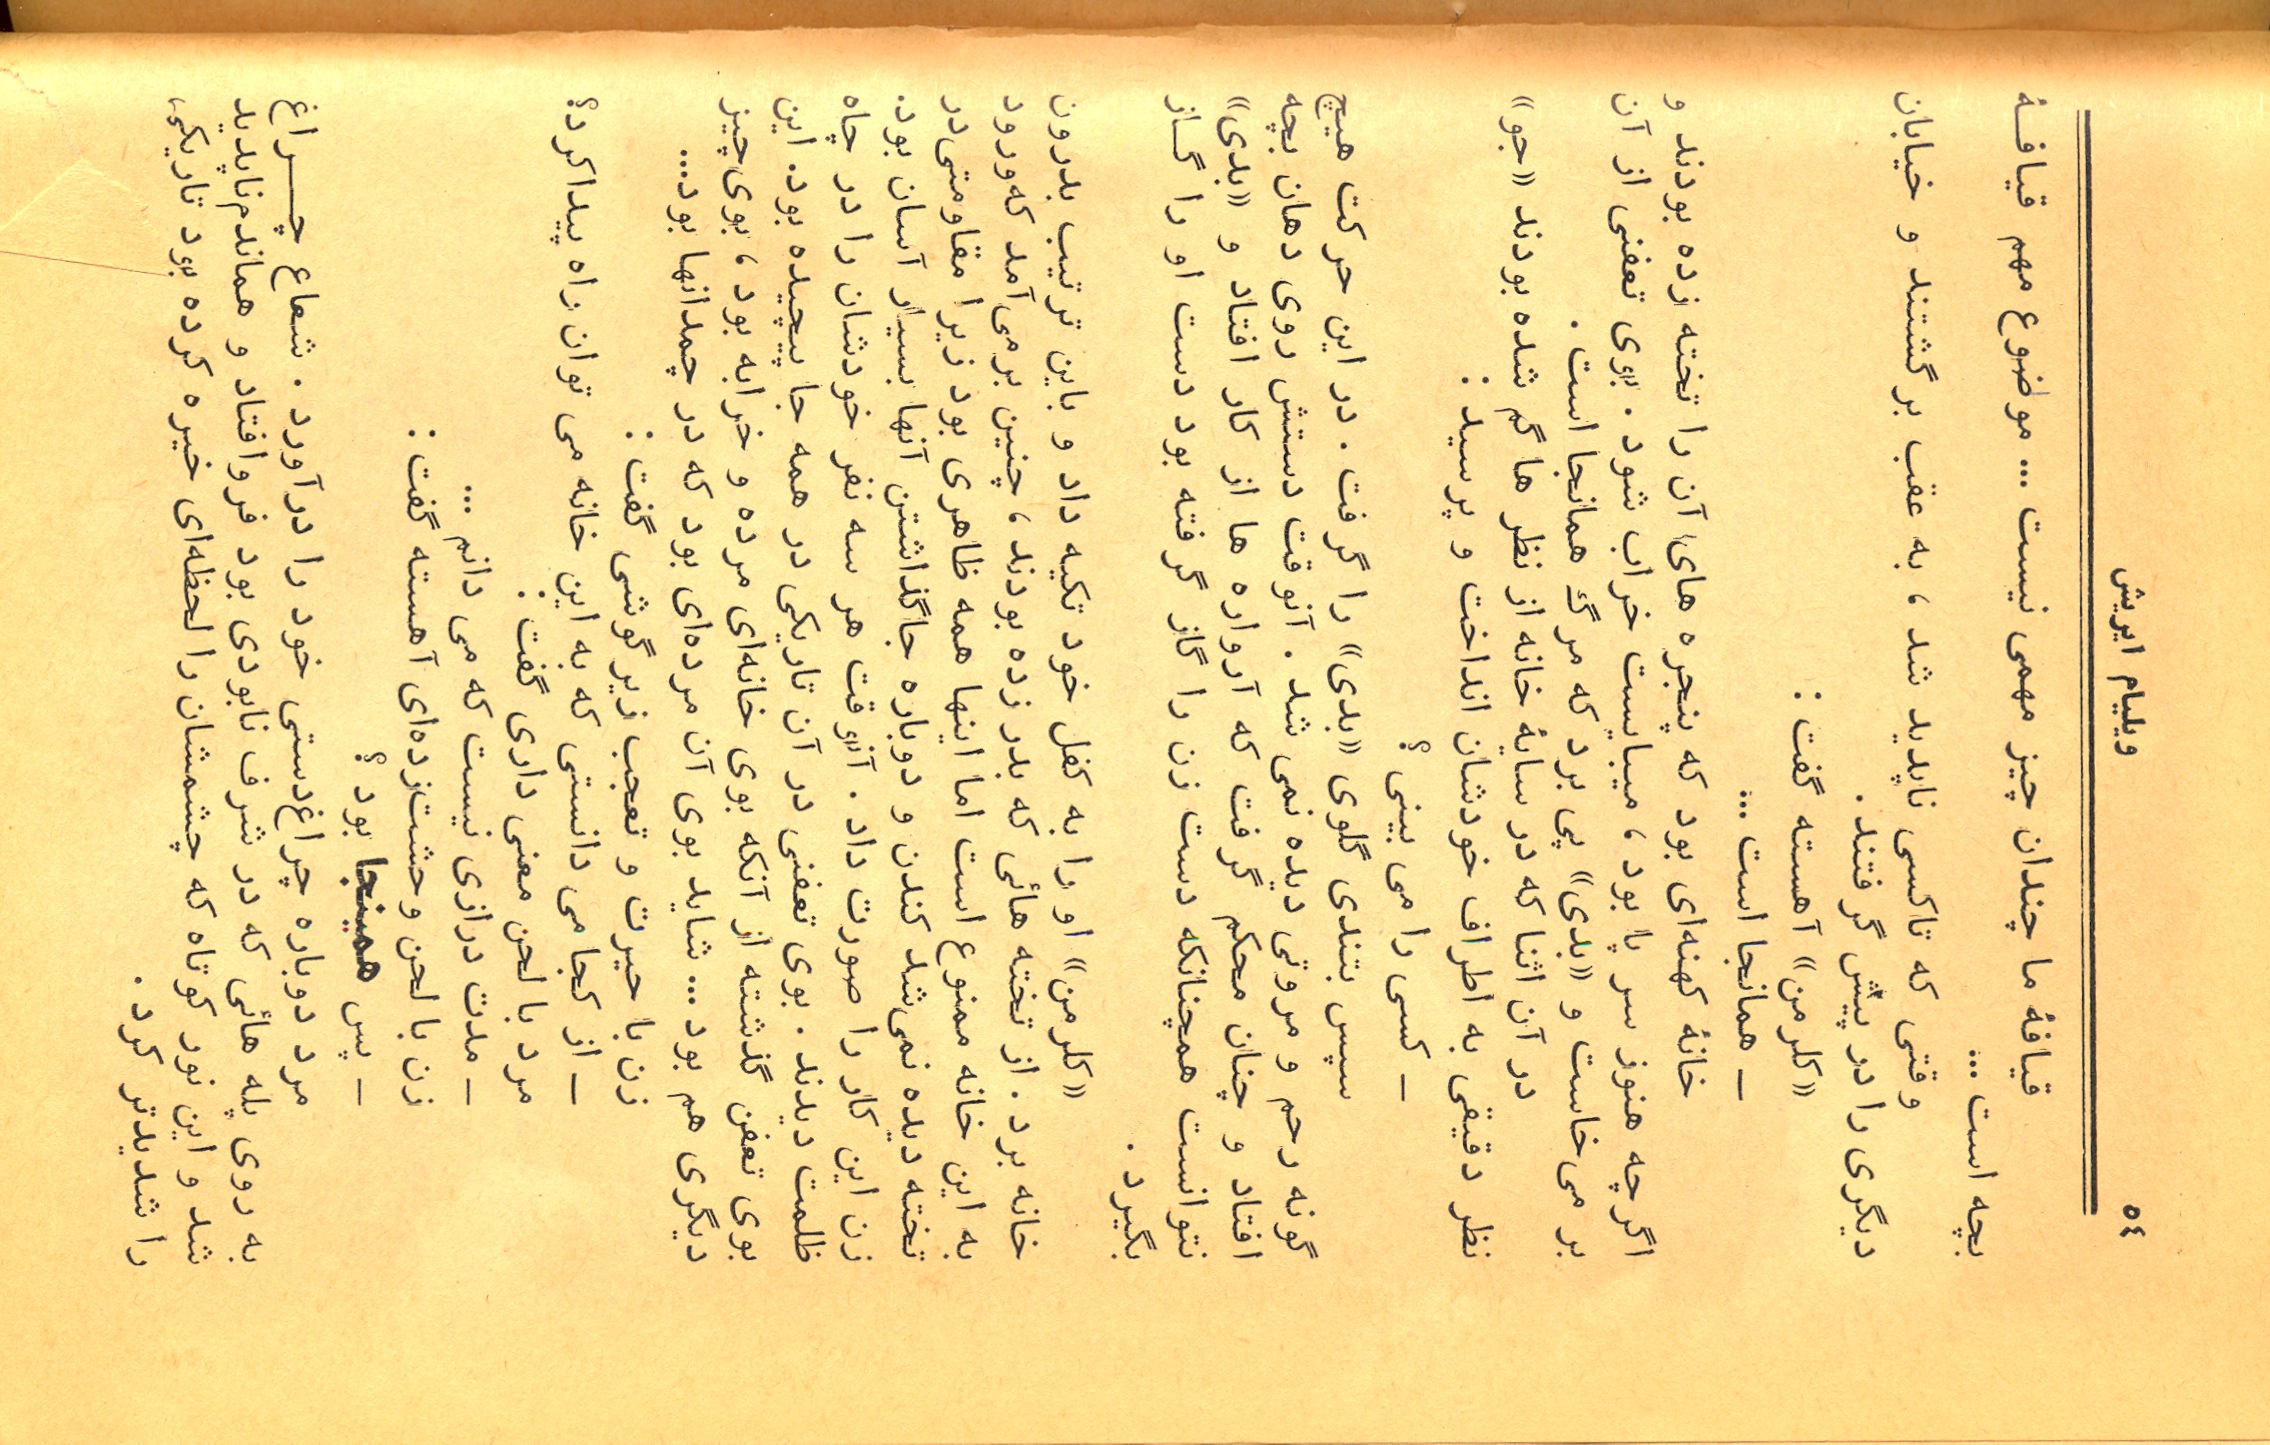 ٥٤ ویلیام ایریش
قیافهٔ ما چندان چیز مهمی نیست ... موضوع مهم قیافهٔ
بچه است ...
وقتی که تاکسی ناپدید شد ، به عقب برگشتند و خیابان
دیگری را در پیش گرفتند .
«کلرمن» آهسته گفت :
— همانجا است ...
خانهٔ کهنه‌ای بود که پنجره های آن را تخته زده بودند و
اگرچه هنوز سرپا بود ، میبایست خراب شود . بوی تعفنی از آن
بر می‌خاست و «بدی» پی برد که مرگ همانجا است .
در آن اثنا که در سایهٔ خانه از نظر ها گم شده بودند «جو»
نظر دقیقی به اطراف خودشان انداخت و پرسید :
— کسی را می بینی ؟
سپس بتندی گلوی «بدی» را گرفت . در این حرکت هیچ
گونه رحم و مروتی دیده نمی شد . آنوقت دستش روی دهان بچه
افتاد و چنان محکم گرفت که آرواره ها از کار افتاد و «بدی»
نتوانست همچنانکه دست زن را گاز گرفته بود دست او را گاز
بگیرد .
«کلرمن» او را به کفل خود تکیه داد و باین ترتیب بدرون
خانه برد . از تخته هائی که بدر زده بودند ، چنین برمی‌آمد که ورود
به این خانه ممنوع است اما اینها همه ظاهری بود زیرا مقاومتی در
تخته دیده نمی‌شد کندن و دوباره جاگذاشتن آنها بسیار آسان بود.
زن این کار را صورت داد . آنوقت هر سه نفر خودشان را در چاه
ظلمت دیدند . بوی تعفنی در آن تاریکی در همه جا پیچیده بود. این
بوی تعفن گذشته از آنکه بوی خانه‌ای مرده و خرابه بود ، بوی چیز
دیگری هم بود ... شاید بوی آن مرده‌ای بود که در چمدانها بود...
زن با حیرت و تعجب زیر گوشی گفت :
— از کجا می دانستی که به این خانه می توان راه پیدا کرد؟
مرد با لحن معنی داری گفت :
— مدت درازی نیست که می دانم ...
زن با لحن وحشت‌زده‌ای آهسته گفت :
— پس همینجا بود ؟
مرد دوباره چراغ‌دستی خود را درآورد . شعاع چراغ
به روی پله هائی که در شرف نابودی بود فرو افتاد و هماندم ناپدید
شد و این نور کوتاه که چشمشان را لحظه‌ای خیره کرده بود تاریکی
را شدیدتر کرد .